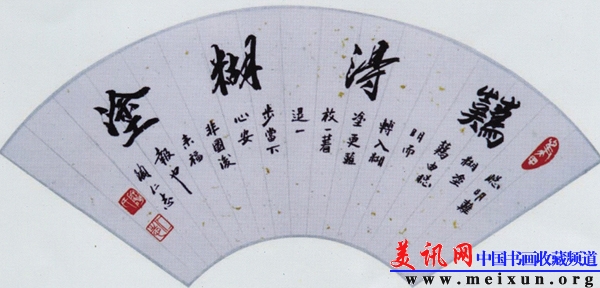 難得糊塗
聪明難
糊塗
難由聪
明而
轉入糊
塗更難
放一著
退一
步當下
心安
非圖後
来福
報也
美讯网 中国书画收藏频道
www.meixun.org